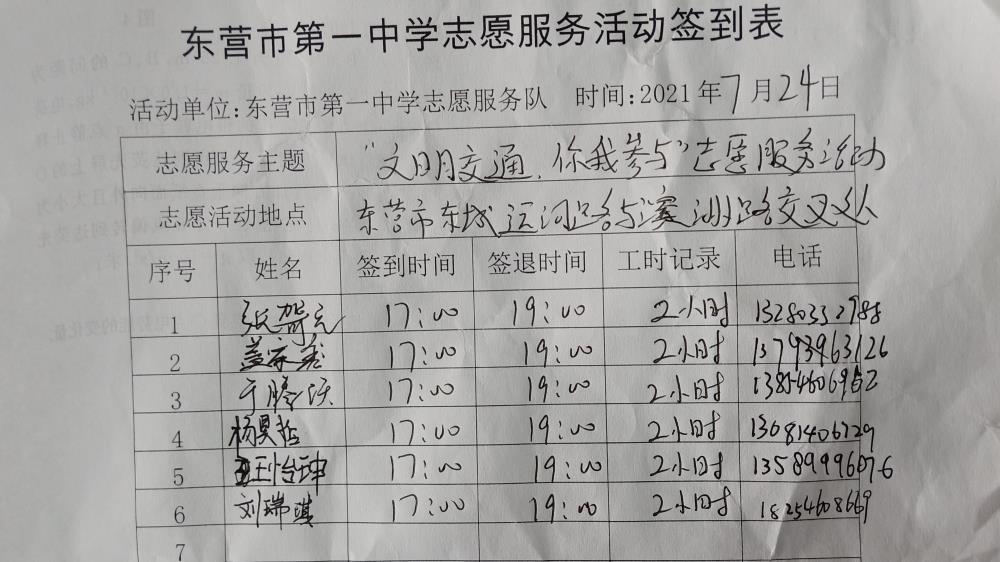 东营市第一中学志愿服务活动签到表
活动单位:东营市第一中学志愿服务队 时间:2021年7月24日
志愿服务主题 “文明交通,你我参与”志愿服务活动
志愿活动地点 东营市东城运河路与滨州路交叉处
序号 姓名 签到时间 签退时间 工时记录 电话
1 17:00 19:00 2小时 13280332988
2 17:00 19:00 2小时 13793963126
3 17:00 19:00 2小时 13854606952
4 杨昊哲 17:00 19:00 2小时 13681406729
5 王怡珅 17:00 19:00 2小时 13589996076
6 刘瑞琪 17:00 19:00 2小时 18254608669
7